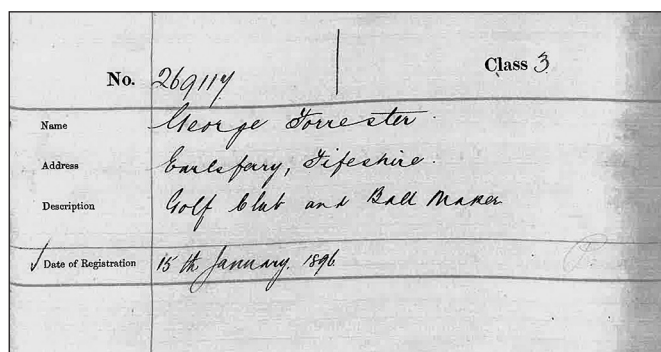 No. 269117 Class 3
Name George Forrester.
Address Earlsferry, Fifeshire.
Description Golf Club and Ball Maker
Date of Registration 15th January. 1896.